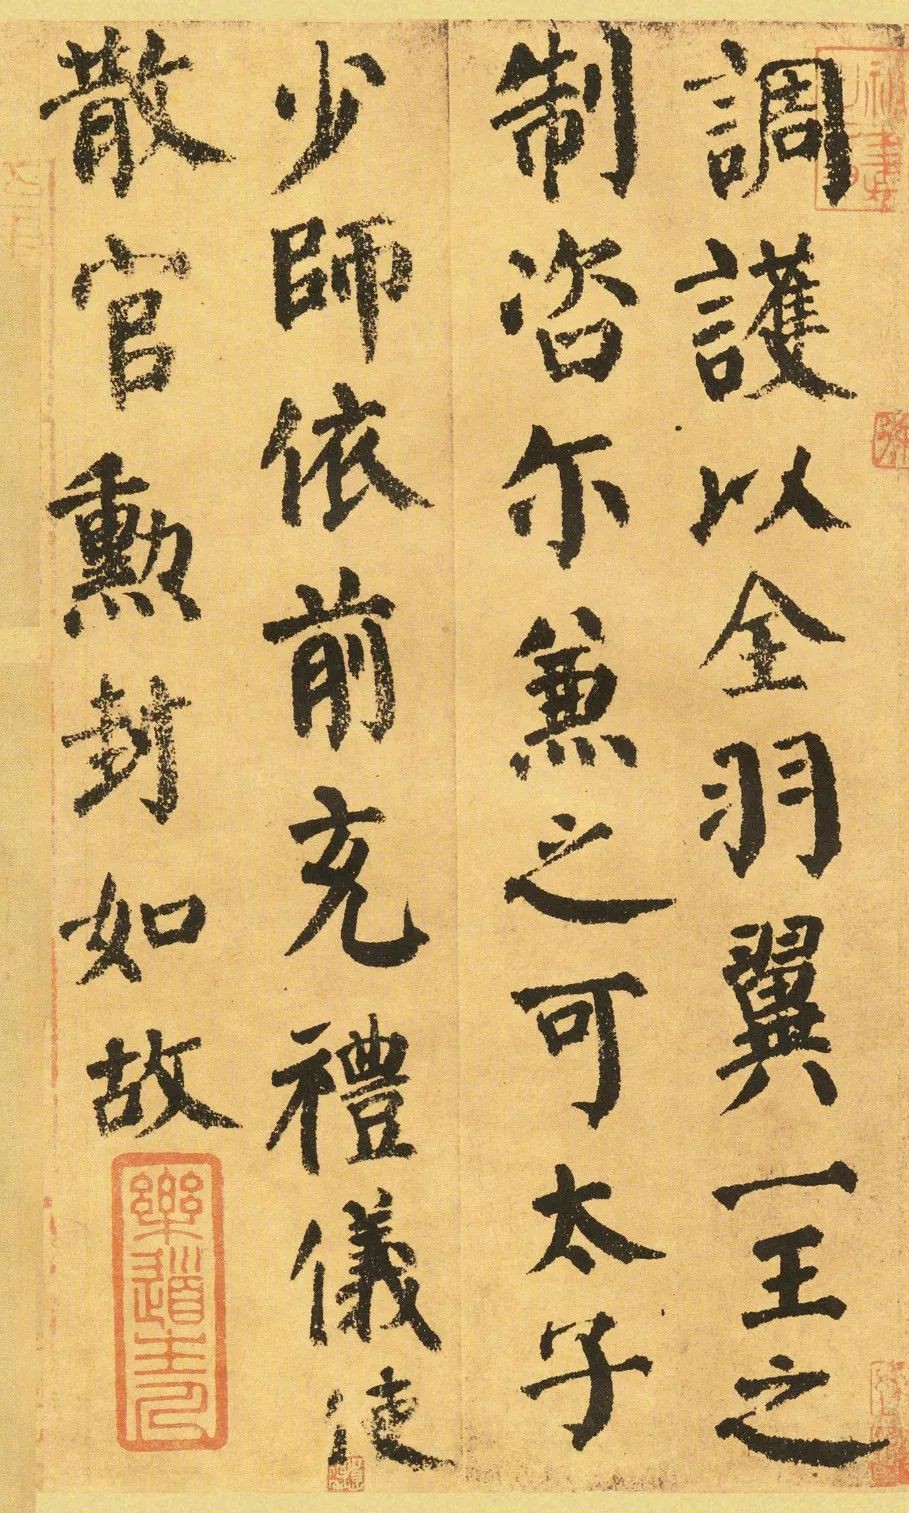 調護以全羽翼一王之
制咨尓兼之可太子
少師依前充禮儀使
散官勲封如故
樂道主人